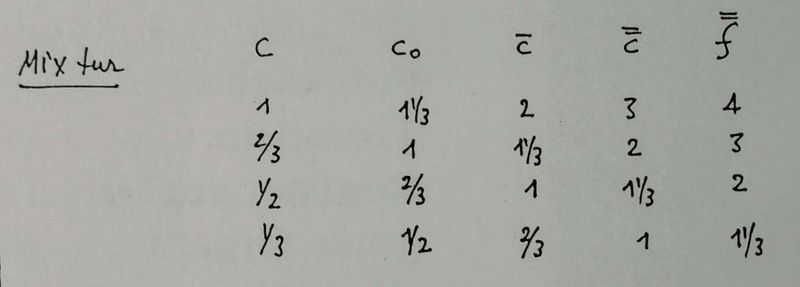 Mixtur C c₀ c̄ c̿ f̿
1 1⅓ 2 3 4
2/3 1 1⅓ 2 3
1/2 2/3 1 1⅓ 2
1/3 1/2 2/3 1 1⅓